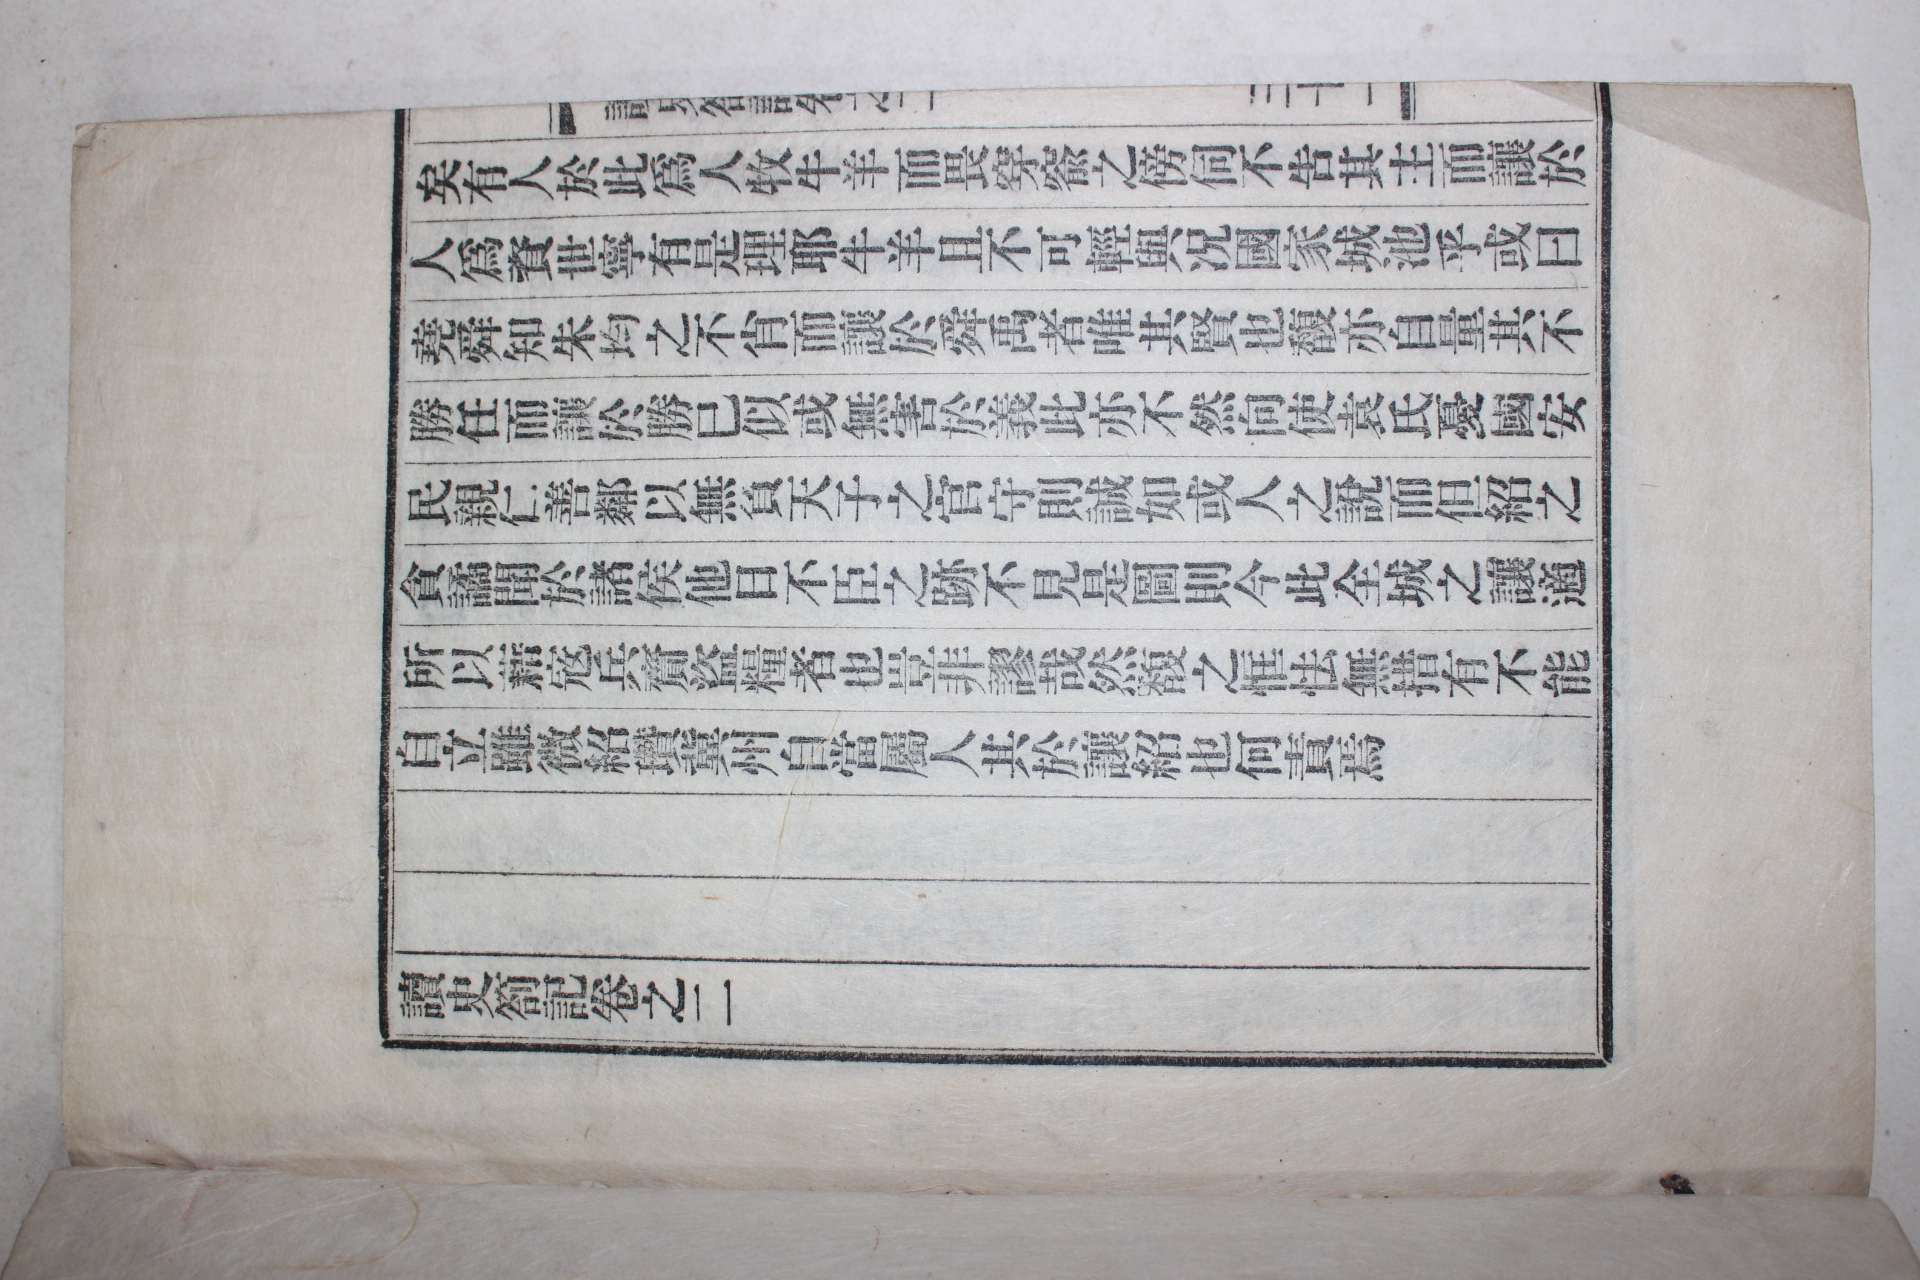 讀史箚記卷之二
矣有人於此爲人牧牛羊而畏穿窬之傍伺不告其主而讓於
人爲資世寧有是理耶牛羊且不可輕與況國家城池乎或曰
堯舜知朱均之不肖而讓於舜禹者唯其賢也馥亦自量其不
勝任而讓於勝己似或無害於義此亦不然向使袁氏憂國安
民親仁善鄰以無負天子之官守則誠如或人之說而但紹之
貪譎聞於諸侯他日不臣之跡不見是圖則今此全城之讓適
所以藉寇兵齎盜糧者也豈非謬哉然馥之恇怯無措有不能
自立雖微紹攘冀州自當屬人其於讓紹也何責焉
讀史箚記卷之二